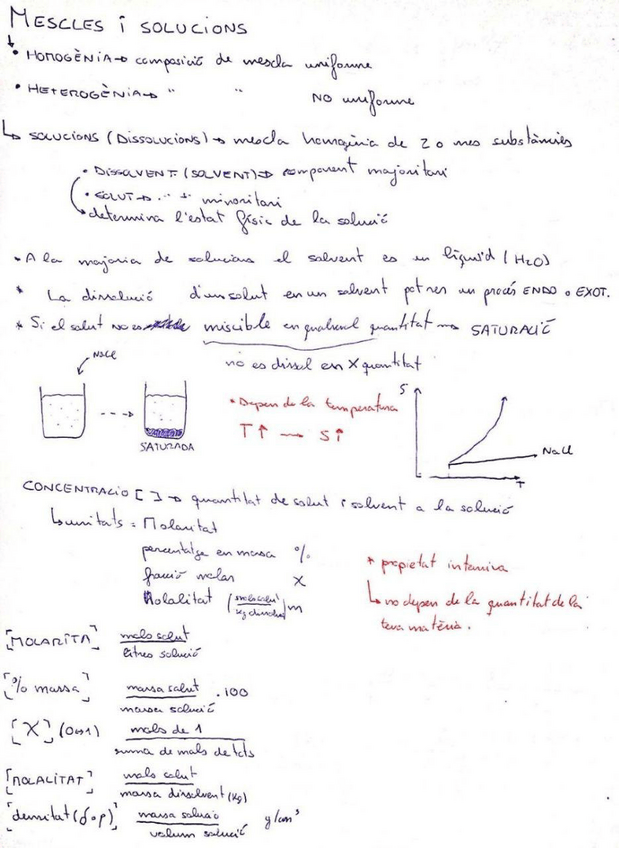 MESCLES i SOLUCIONS
• HOMOGÈNIA → composició de mescla uniforme
• HETEROGÈNIA → " " NO uniforme
↳ SOLUCIONS (DISSOLUCIONS) → mescla homogènia de 2 o mes substàncies
• DISSOLVENT (SOLVENT) → component majoritari
• SOLUT → " " minoritari
determina l'estat físic de la solució
• A la majoria de solucions el solvent es un líquid (H2O)
* La dissolució d'un solut en un solvent pot ser un procés ENDO o EXOT.
* Si el solut no es miscible en qualsevol quantitat → SATURACIÓ
no es dissol en X quantitat
NaCl
SATURADA
• Depen de la temperatura
T↑ → S↑
S
NaCl
T
CONCENTRACIO [ ] → quantitat de solut i solvent a la solució
↳ unitats = Molaritat
percentatge en massa %
fracció molar X
Molalitat (mols solut / kg dissolvent) m
* propietat intensiva
↳ no depen de la quantitat de la
teva matèria.
[MOLARITA] mols solut / litres solució
[% massa] massa solut / massa solució . 100
[X] (0→1) mols de 1 / suma de mols de tots
[MOLALITAT] mols solut / massa dissolvent (Kg)
[densitat (δ o ρ)] massa solució / volum solució g/cm³